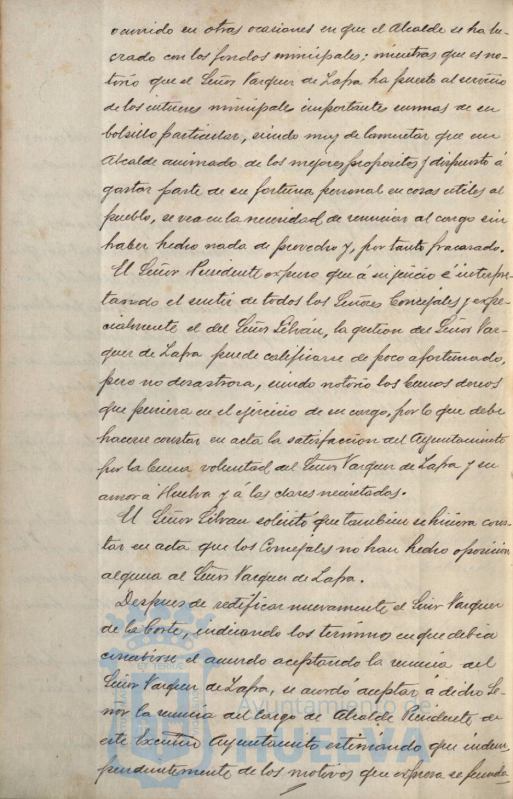 ocurrido en otras ocasiones en que el Alcalde se ha lu-
crado con los fondos municipales; mientras que es no-
torio que el Señor Vazquez de Zafra ha puesto al servicio
de los intereses municipales importantes sumas de su
bolsillo particular, siendo muy de lamentar que un
Alcalde animado de los mejores propositos y dispuesto á
gastar parte de su fortuna personal en cosas utiles al
pueblo, se vea en la necesidad de renunciar al cargo sin
haber hecho nada de provecho y, por tanto fracasado.
El Señor Presidente expuso que á su juicio é interpre-
tando el sentir de todos los Señores Concejales y espe-
cialmente el del Señor Silván, la gestion del Señor Vaz-
quez de Zafra puede calificarse de poco afortunada,
pero no desastrosa, siendo notorio los buenos deseos
que pusiera en el ejercicio de su cargo, por lo que debe
hacerse constar en acta la satisfaccion del Ayuntamiento
por la buena voluntad del Señor Vazquez de Zafra y su
amor á Huelva y á las clases necesitadas.
El Señor Silvan solicitó que tambien se hiciera cons-
tar en acta que los Concejales no han hecho oposicion
alguna al Señor Vazquez de Zafra.
Despues de rectificar nuevamente el Señor Vazquez
de la Corte, indicando los terminos en que debia
concebirse el acuerdo aceptando la renuncia del
Señor Vazquez de Zafra, se acordó aceptar á dicho Se-
ñor la renuncia del cargo de Alcalde Presidente de
este Excmo Ayuntamiento estimando que indem
pendientemente de los motivos que expresa se funda
Ayuntamiento de
HUELVA